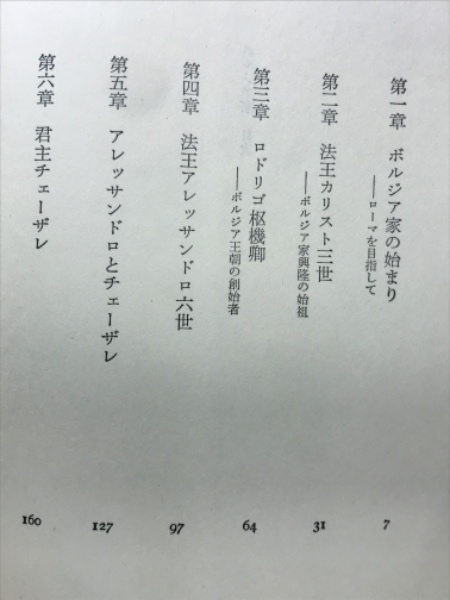 第一章 ボルジア家の始まり
——ローマを目指して
7
第二章 法王カリスト三世
——ボルジア家興隆の始祖
31
第三章 ロドリゴ枢機卿
——ボルジア王朝の創始者
64
第四章 法王アレッサンドロ六世
97
第五章 アレッサンドロとチェーザレ
127
第六章 君主チェーザレ
160